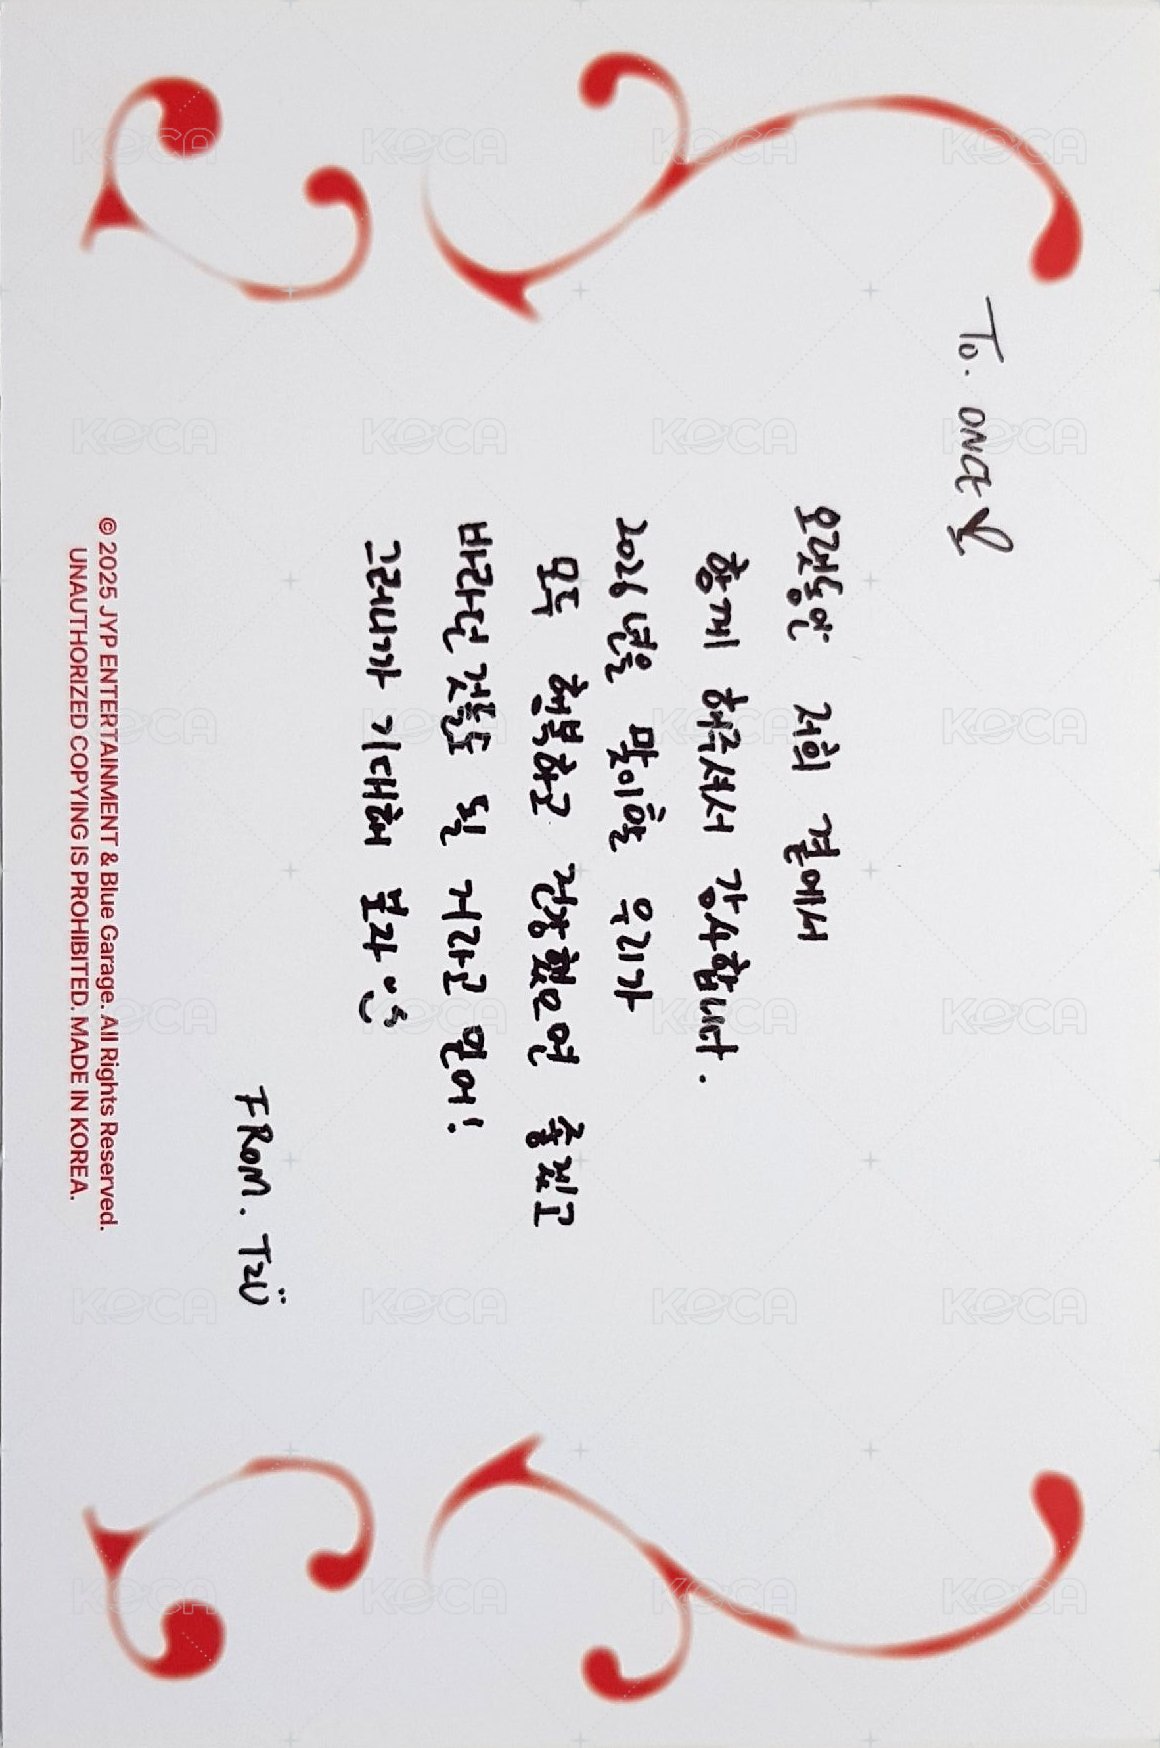 To. ONCE
오랫동안 저희 곁에서
함께 해주셔서 감사합니다.
2026년을 맞이할 우리가
모두 행복하고 건강했으면 좋겠고
바라던 것들도 될 거라고 믿어!
그러니까 기대해 보자
FROM. TZU
© 2025 JYP ENTERTAINMENT & Blue Garage. All Rights Reserved.
UNAUTHORIZED COPYING IS PROHIBITED. MADE IN KOREA.
KOCA